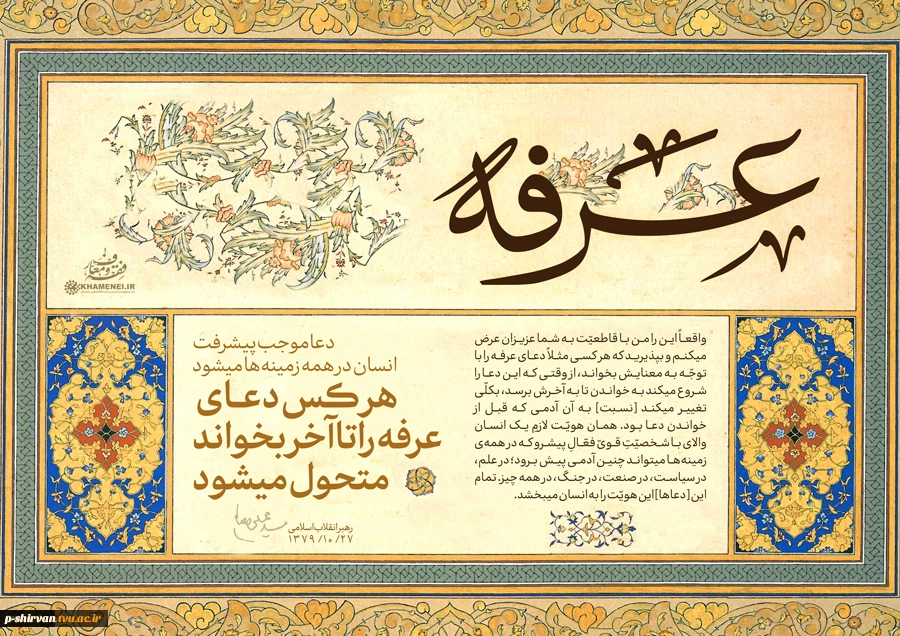 عرفه
فقه و معارف
KHAMENEI.IR
واقعاً این را من با قاطعیّت به شما عزیزان عرض
میکنم و بپذیرید که هر کسی مثلاً دعای عرفه را با
توجّه به معنایش بخواند، از وقتی که این دعا را
شروع میکند به خواندن تا به آخرش برسد، بکلّی
تغییر میکند [نسبت] به آن آدمی که قبل از
خواندن دعا بود. همان هویّت لازمِ یک انسان
والای با شخصیّتِ قویّ فعّالِ پیشرو که در همه‌ی
زمینه‌ها میتواند چنین آدمی پیش برود؛ در علم،
در سیاست، در صنعت، در جنگ، در همه چیز. تمام
این [دعاها] این هویّت را به انسان میبخشد.
دعا موجب پیشرفت
انسان در همه زمینه‌ها میشود
هر کس دعـای
عرفه را تا آخر بخواند
متحول میشود
رهبر انقلاب اسلامی
۱۳۷۹/۱۰/۲۷
p-shirvan.tvu.ac.ir